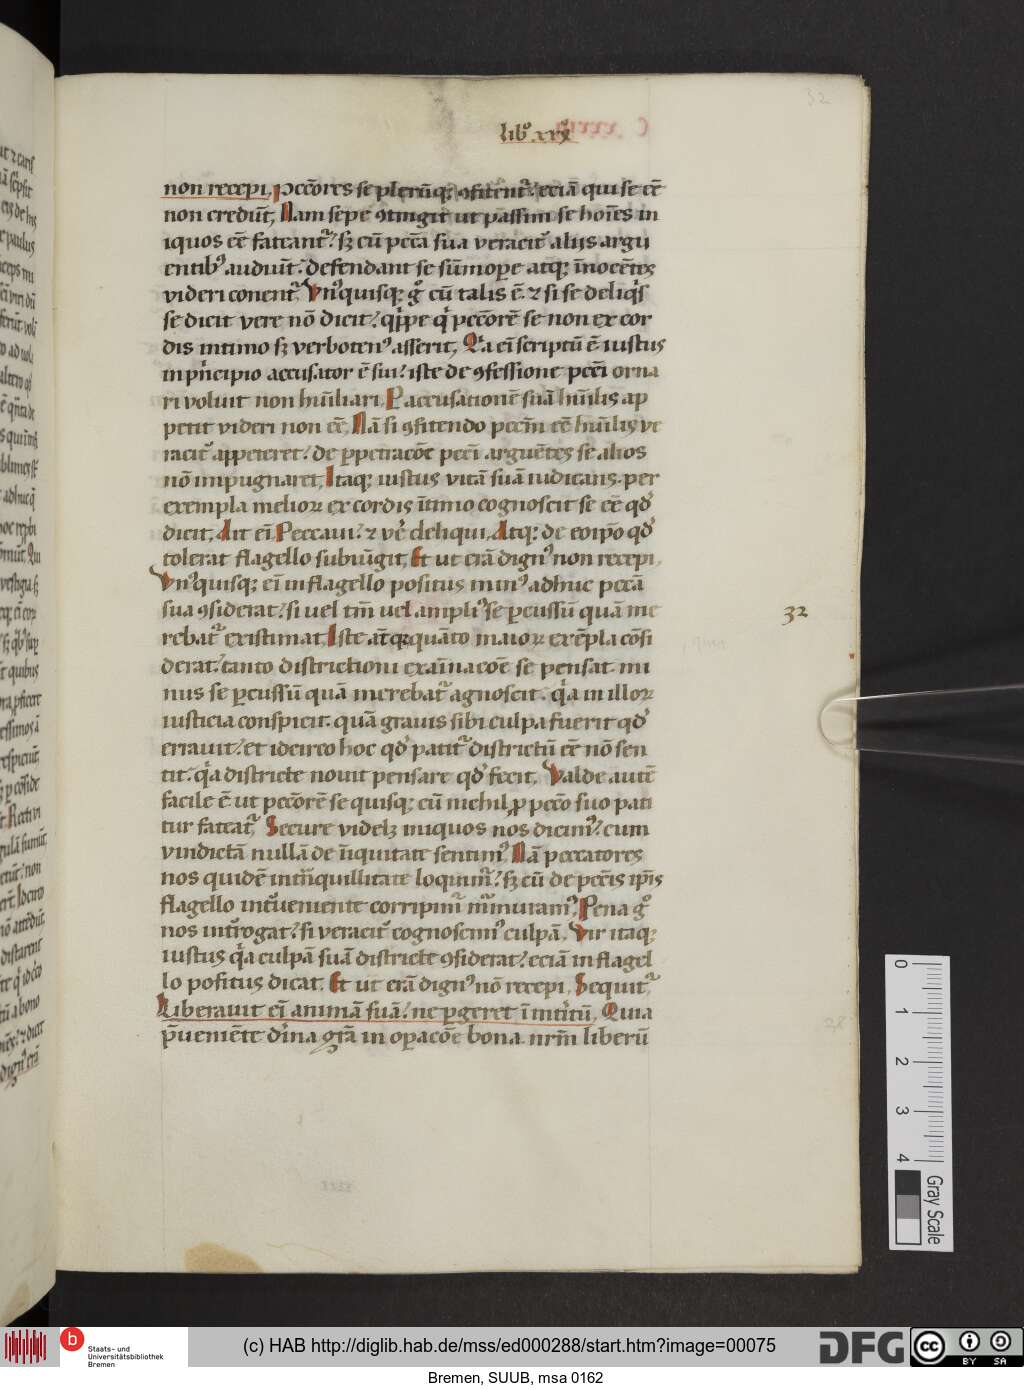 32
libꝰ xxxꝰ
non recepi. pcc̄ores se plerūqꝫ ꝯfitentᷣ⁊ eciā qui se eē
non crediūt. Nam sepe ꝯtingit ut passim se hoīes in
iquos eē fateantᷣ⁊ sꝫ cū pcc̄a sua veracitᷣ aliis argu
entibꝰ audiūt. defendant se sūmope atqꝫ īnocētes
videri conentᷣ. Vnꝰquisqꝫ gͦ cū talis ē. ⁊ si se deliq̇ſ
se dicit vere nō dicit⁊ qꝓpe q̇ pcc̄orē se non ex cor
dis intimo sꝫ verbotenꝰ asserit. Qa eī scriptū ē iustus
in pⁱncipio accusator ē sui⁊ iste de ꝯfessione pcc̄i orna
ri voluit non hūiliari. P accusationē suā hūilis ap
petit videri non eē. Nā si ꝯfitendo pcc̄m eē hūilis ve
racitᷣ appeteret⁊ de ꝑpetracōe pcc̄i arguētes se alios
nō impugnaret. Itaqꝫ iustus vitā suā iudicans. per
exempla melioꝝ ex cordis ītimo cognoscit se eē qd̓
dicit. Ait eī. Peccaui⁊ ⁊ ve̓ deliqui. Atqꝫ de corpͦe qd̓
tolerat flagello subiūgit. Et ut erā dignꝰ non recepi.
Vnꝰquisqꝫ eī in flagello positus minꝰ adhuc pcc̄a
sua ꝯsiderat⁊ si uel tm̄ uel ampliꝰ se ꝑcussū quā me
rebatᷣ existimat. Iste at̄ qꝛ quāto maioꝝ exēpla cōsi
derat. tanto districtioni exaīnacōe se pensat mi
nus se ꝑcussū quā merebatᷣ agnoscit. q̇a in illoꝝ
iusticia conspicit. quā grauis sibi culpa fuerit qd̓
errauit⁊ et idcirco hoc qd̓ patitᷣ districtū eē nō sen
tit. q̇a districte nouit pensare qd̓ fecit. Valde autē
facile ē ut pcc̄orē se quisqꝫ cū nichil ꝓ pcc̄o suo pati
tur fateatᷣ. Secure videlꝫ iniquos nos dicimꝰ⁊ cum
vindictā nullā de īiquitate sentimꝰ. Nā peccatores
nos quidē int̄nquillitate loquimᷣ⁊ sꝫ cū de pcc̄is ip̄is
flagello int̓ueniente corripimᷣ m̄muramꝰ. Pena gͦ
nos int̓rogat⁊ si veracitᷣ cognoscimꝰ culpā. Vir itaqꝫ
iustus q̇a culpā suā districte ꝯsiderat⁊ eciā in flagel
lo positus dicat. Et ut erā dignꝰ nō recepi. Sequitᷣ.
Liberauit eī animā suā⁊ ne ꝑgeret ī int̓itū. Quia
p̄ueniēte di̓na gr̄a in opacōe bona. nr̄m liberū
32
28
0
1
2
3
4
Gray Scale
Staats- und
Universitätsbibliothek
Bremen
(c) HAB http://diglib.hab.de/mss/ed000288/start.htm?image=00075
DFG
cc
BY SA
Bremen, SUUB, msa 0162